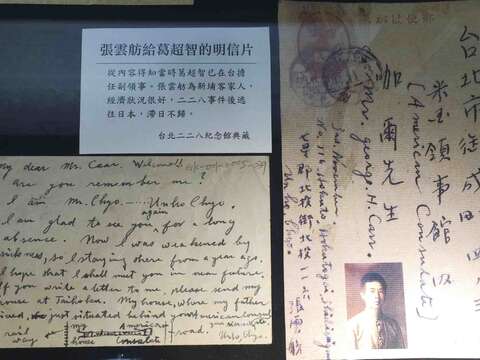 張雲舫給葛超智的明信片
從內容得知當時葛超智已在台擔
任副領事。張雲舫為新埔客家人,
經濟狀況很好,二二八事件後逃
往日本,滯日不歸。
台北二二八紀念館典藏
My dear Mr. Caar.
Are you remember me?
I am Mr. Chyo. ..... Unho Chyo.
again
I am glad to see you, for a long
absence. Now I was weakened by
sickness, so I staying there from a year ago.
I hope that I shall meet you in near future.
If you write a letter to me, please send my
house at Taihoku. My house, where my father
lived, just situated behind your American consul
rail way
house
American
Consulate
road.
Unho Chyo.
台北市
米国領事館
(American Consulate)
加爾先生
Mr. george. H. Carr.
3rd. November.
No. 116, Hokuto,
七星郡北投街北投一一六
張雲舫
Unho Chyo.